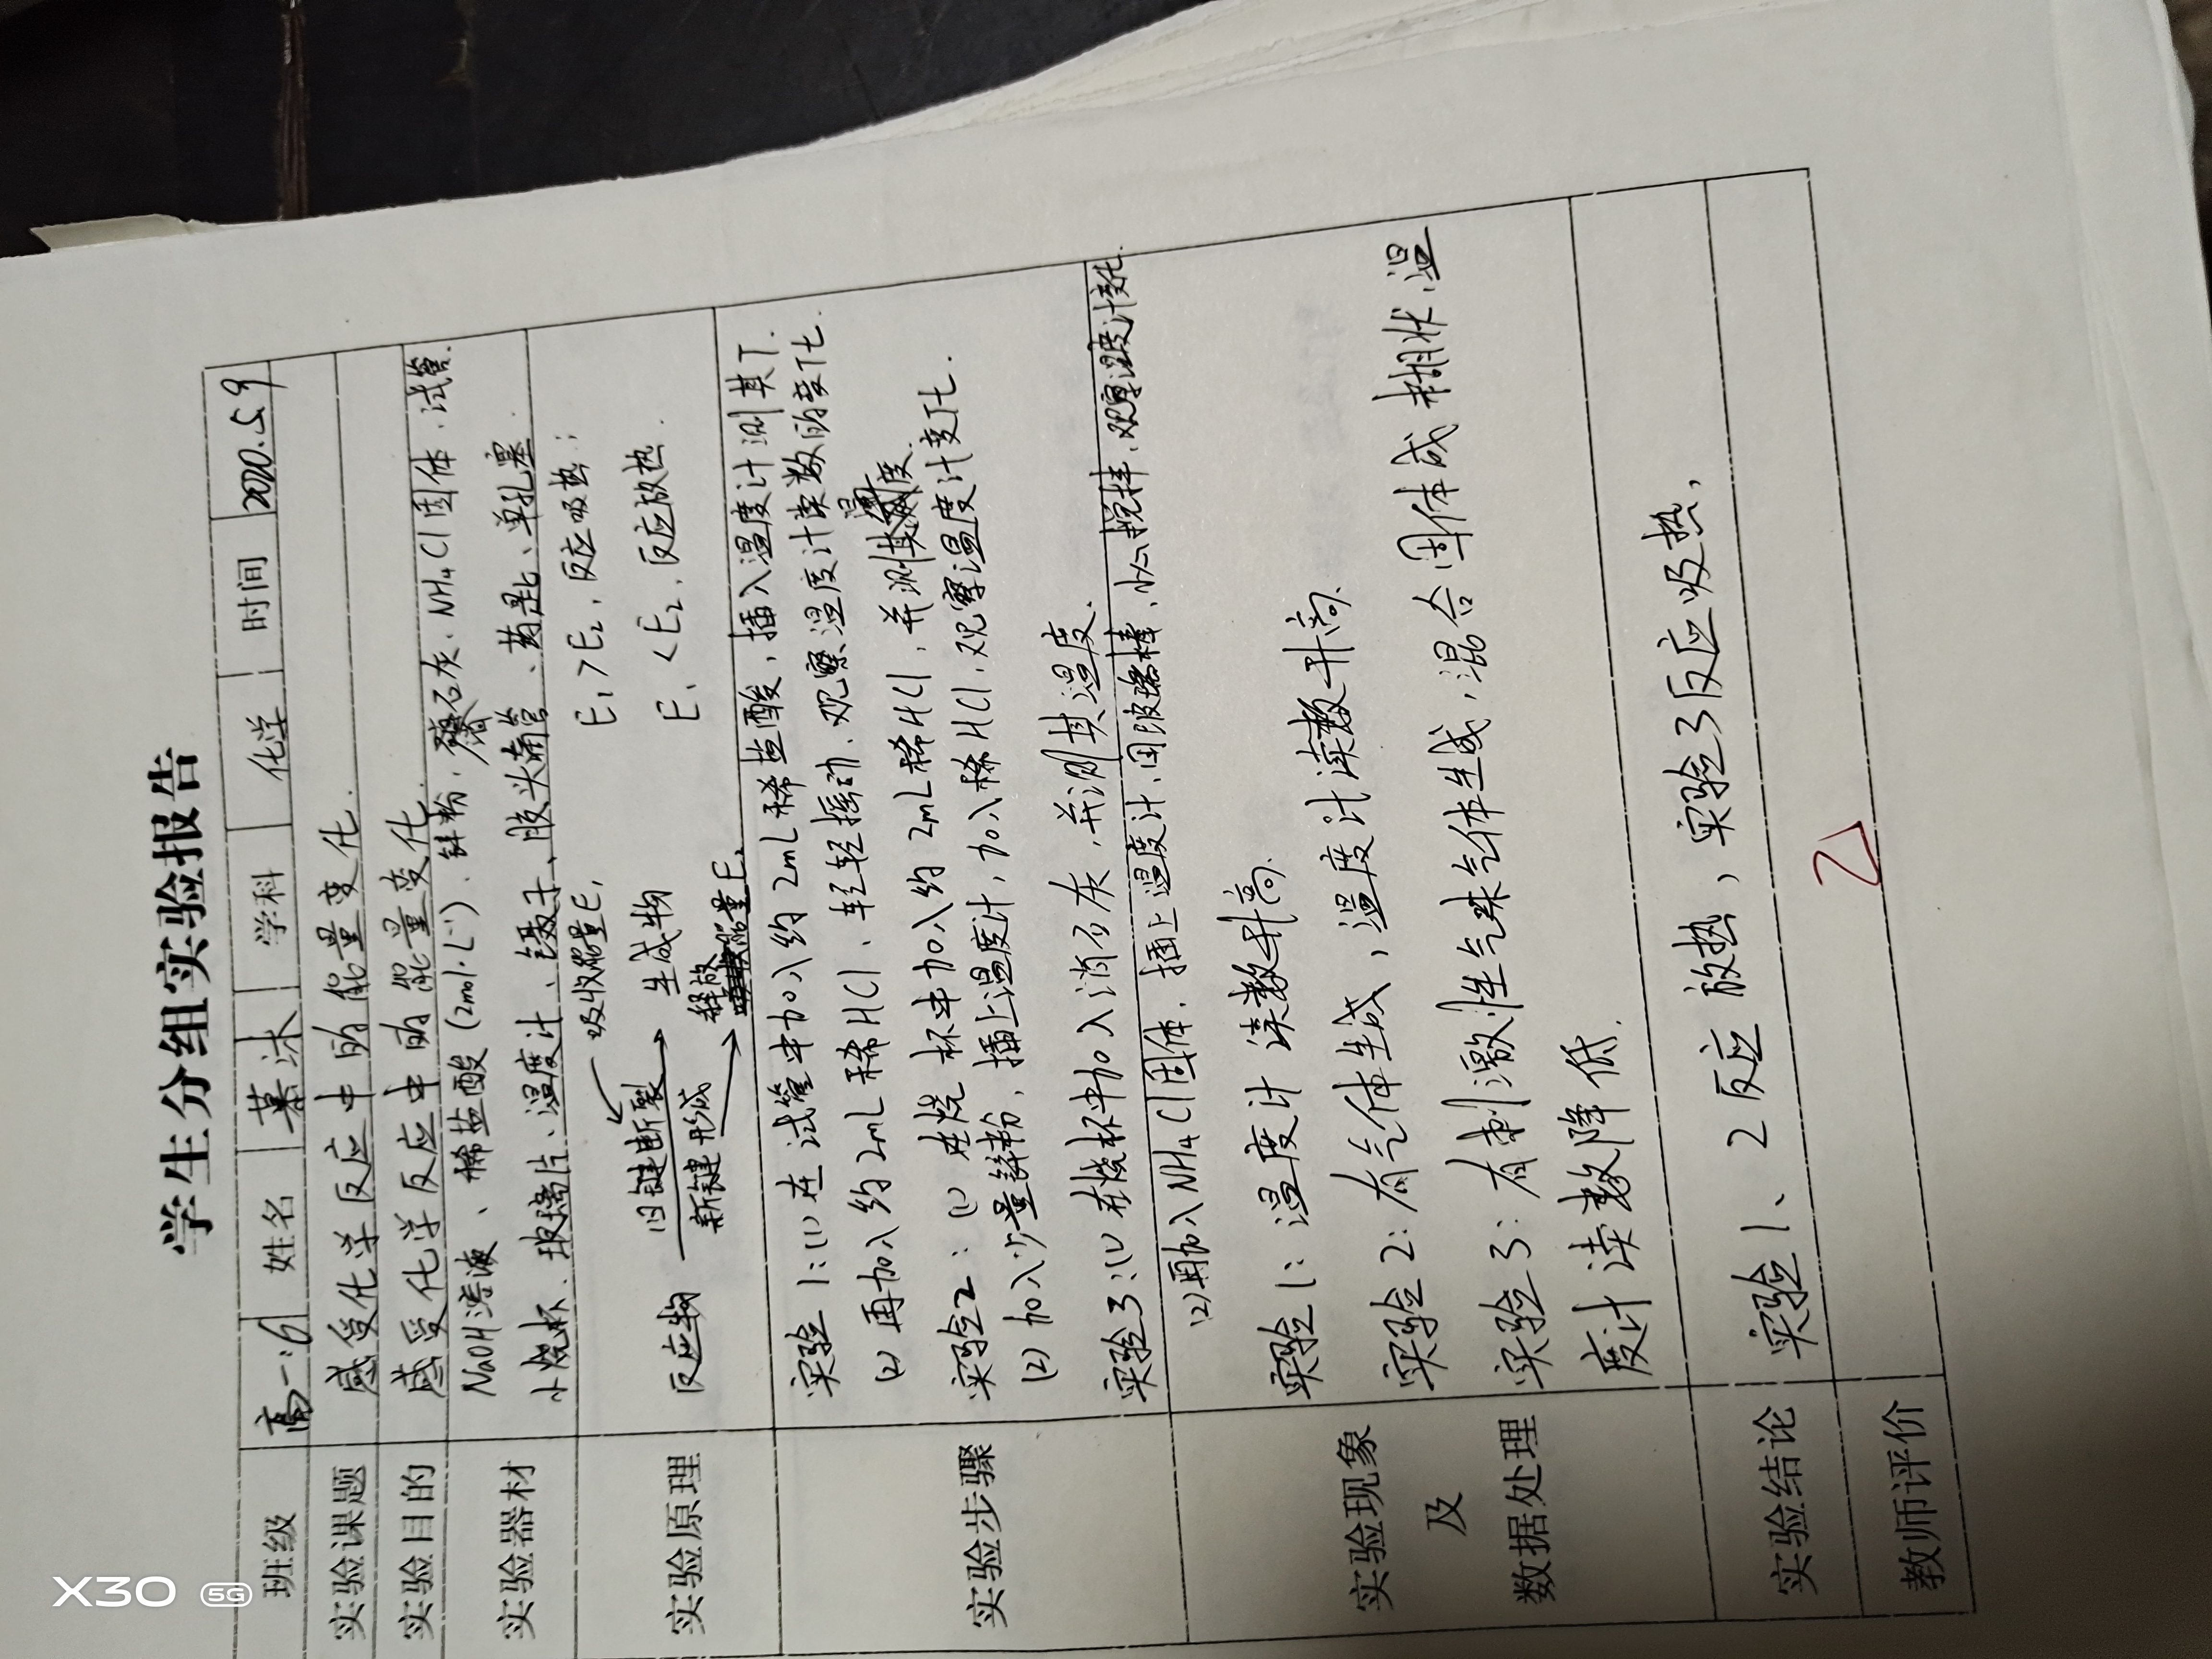 学生分组实验报告
班级 高一.6 姓名 慕沐 学科 化学 时间 2020.5.9
实验课题 感受化学反应中的能量变化.
实验目的 感受化学反应中的能量变化.
实验器材 NaOH溶液、稀盐酸(2mol·L⁻¹)、锌粉、石灰、NH₄Cl固体、试管.
小烧杯、玻璃片、温度计、镊子、胶头滴管、药匙、单孔塞
吸收能量E₁ E₁>E₂,反应吸热;
实验原理 反应物 旧键断裂 新键形成 生成物
释放能量E₂ E₁<E₂,反应放热.
实验步骤 实验1:(1)在试管中加入约2mL稀盐酸,插入温度计测其T.
(2)再加入约2mL稀HCl、轻轻摇动、观察温度计读数的变化.
实验2:(1)在烧杯中加入约2mL稀HCl,并测其温度.
(2)加入少量锌粉,插上温度计,加入稀HCl,观察温度计变化.
实验3:(1)在烧杯中加入消石灰,并测其温度.
(2)再加入NH₄Cl固体,插上温度计、用玻璃棒、小心搅拌、观察温度计变化.
实验现象
及
数据处理
实验1:温度计读数升高.
实验2:有气体生成,温度计读数升高.
实验3:有刺激性气味气体生成,混合固体成糊状,温
度计读数降低.
实验结论 实验1、2反应放热,实验3反应吸热.
教师评价 乙
X30 5G